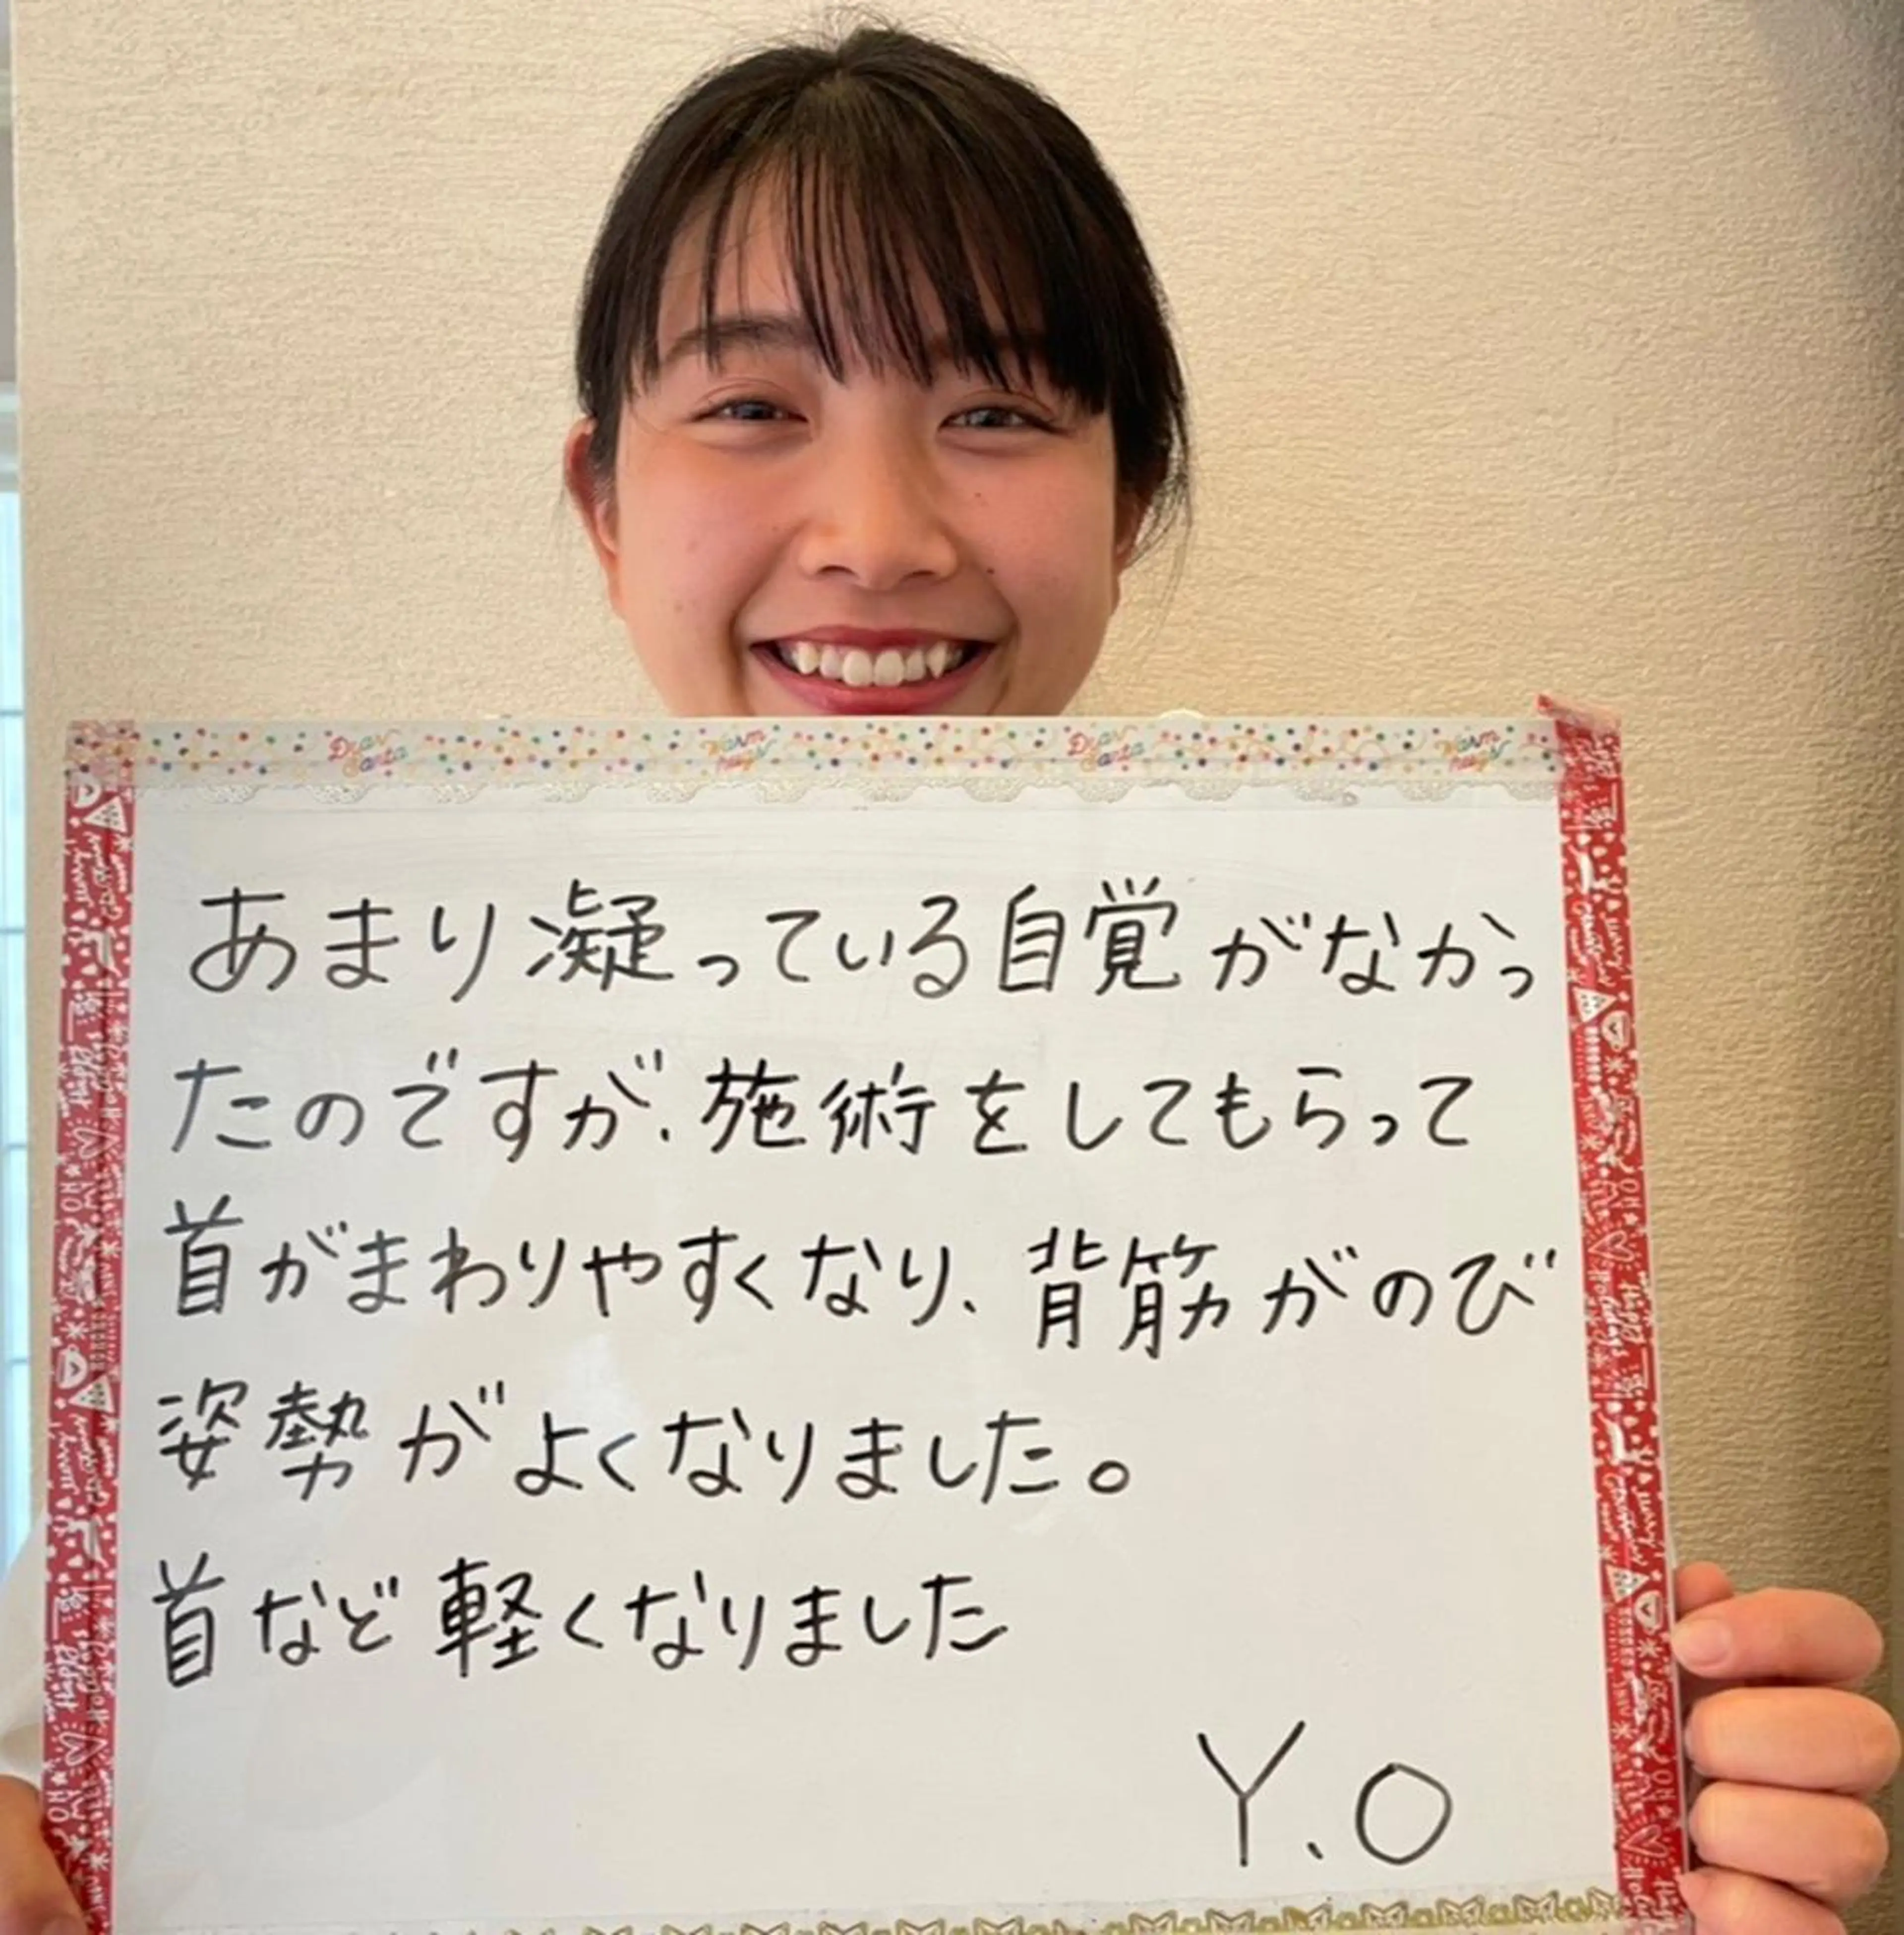 Dear Santa warm hugs Dear Santa warm hugs
あまり凝っている自覚がなかっ
たのですが、施術をしてもらって
首がまわりやすくなり、背筋がのび
姿勢がよくなりました。
首など軽くなりました
Y.O